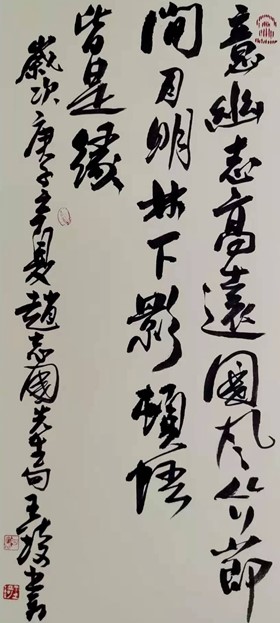 意幽志高遠国风竹節
间月明林下影頓悟
皆是缘
歲次庚子年夏趙志國先生句王